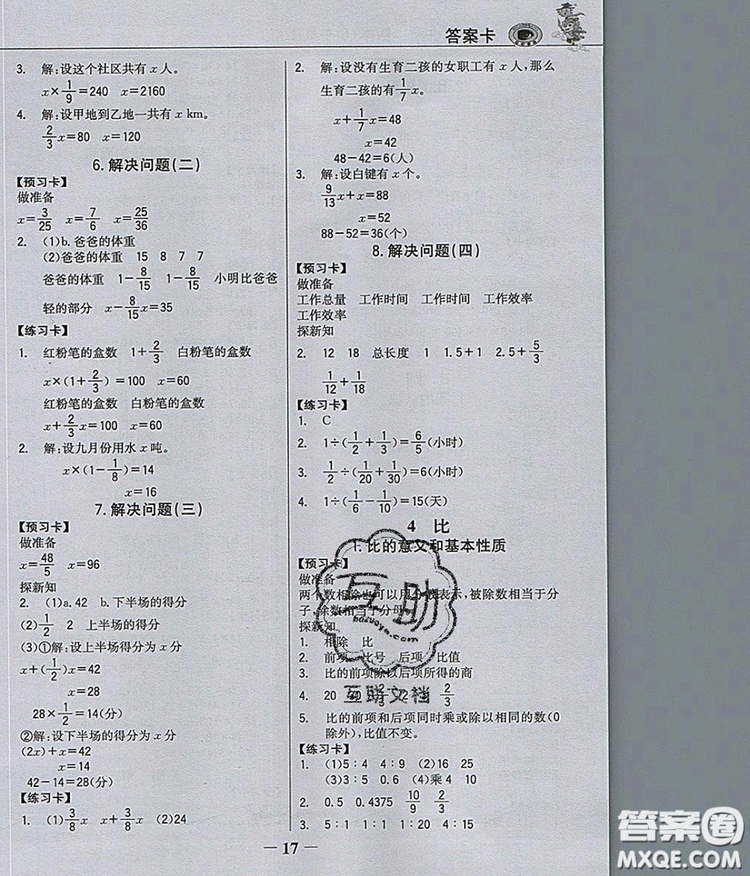 答案卡
3. 解:设这个社区共有 x 人。
x×1/9=240 x=2160
4. 解:设甲地到乙地一共有 x km。
2/3x=80 x=120
6.解决问题(二)
【预习卡】
做准备
x=3/25 x=7/6 x=25/36
2. (1)b. 爸爸的体重
(2)爸爸的体重 15 8 7 7
爸爸的体重 1-8/15 1-8/15 小明比爸爸
轻的部分 x-8/15x=35
【练习卡】
1. 红粉笔的盒数 1+2/3 白粉笔的盒数
x×(1+2/3)=100 x=60
红粉笔的盒数 白粉笔的盒数
x+2/3x=100 x=60
2. 解:设九月份用水 x 吨。
x×(1-1/8)=14
x=16
7.解决问题(三)
【预习卡】
做准备
x=48/5 x=96
探新知
2. (1)a.42 b.下半场的得分
(2)1/2 2 上半场的得分
(3)①解:设上半场得分为 x 分
x+(1/2x)=42
x=28
28×1/2=14(分)
②解:设下半场的得分为 x 分
(2x)+x=42
x=14
42-14=28(分)
【练习卡】
1. (1)3/8x x+3/8x (2)24
2. 解:设没有生育二孩的女职工有 x 人,那么
生育二孩的有1/7x。
x+1/7x=48
x=42
48-42=6(人)
3. 解:设白键有 x 个。
9/13x+x=88
x=52
88-52=36(个)
8.解决问题(四)
【预习卡】
做准备
工作总量 工作时间 工作时间 工作效率
工作效率
探新知
2. 12 18 总长度 1 1.5+1 5/3
1/12+1/18
【练习卡】
1. C
2. 1÷(1/2+1/3)=6/5(小时)
3. 1/2÷(1/20+1/30)=6(小时)
4. 1÷(1/6-1/10)=15(天)
4 比
1.比的意义和基本性质
【预习卡】
做准备
两个数相除也可以用分数表示,被除数相当于分
子,除数相当于分母。
探新知
1. 相除 比
2. 前项 比号 后项 比值
3. 比的前项除以后项所得的商
4. 20 30 2/3 2 2/3
5. 比的前项和后项同时乘或除以相同的数(0
除外),比值不变。
【练习卡】
1. (1)5:4 4:9 (2)16 25
(3)3:5 6:25 (4)乘4
2. 0.5 0.4375 10/9 2/3
3. 5:1 1:1 20:1 4:15
互助
互助文档
— 17 —
答案圈
MXQE.COM